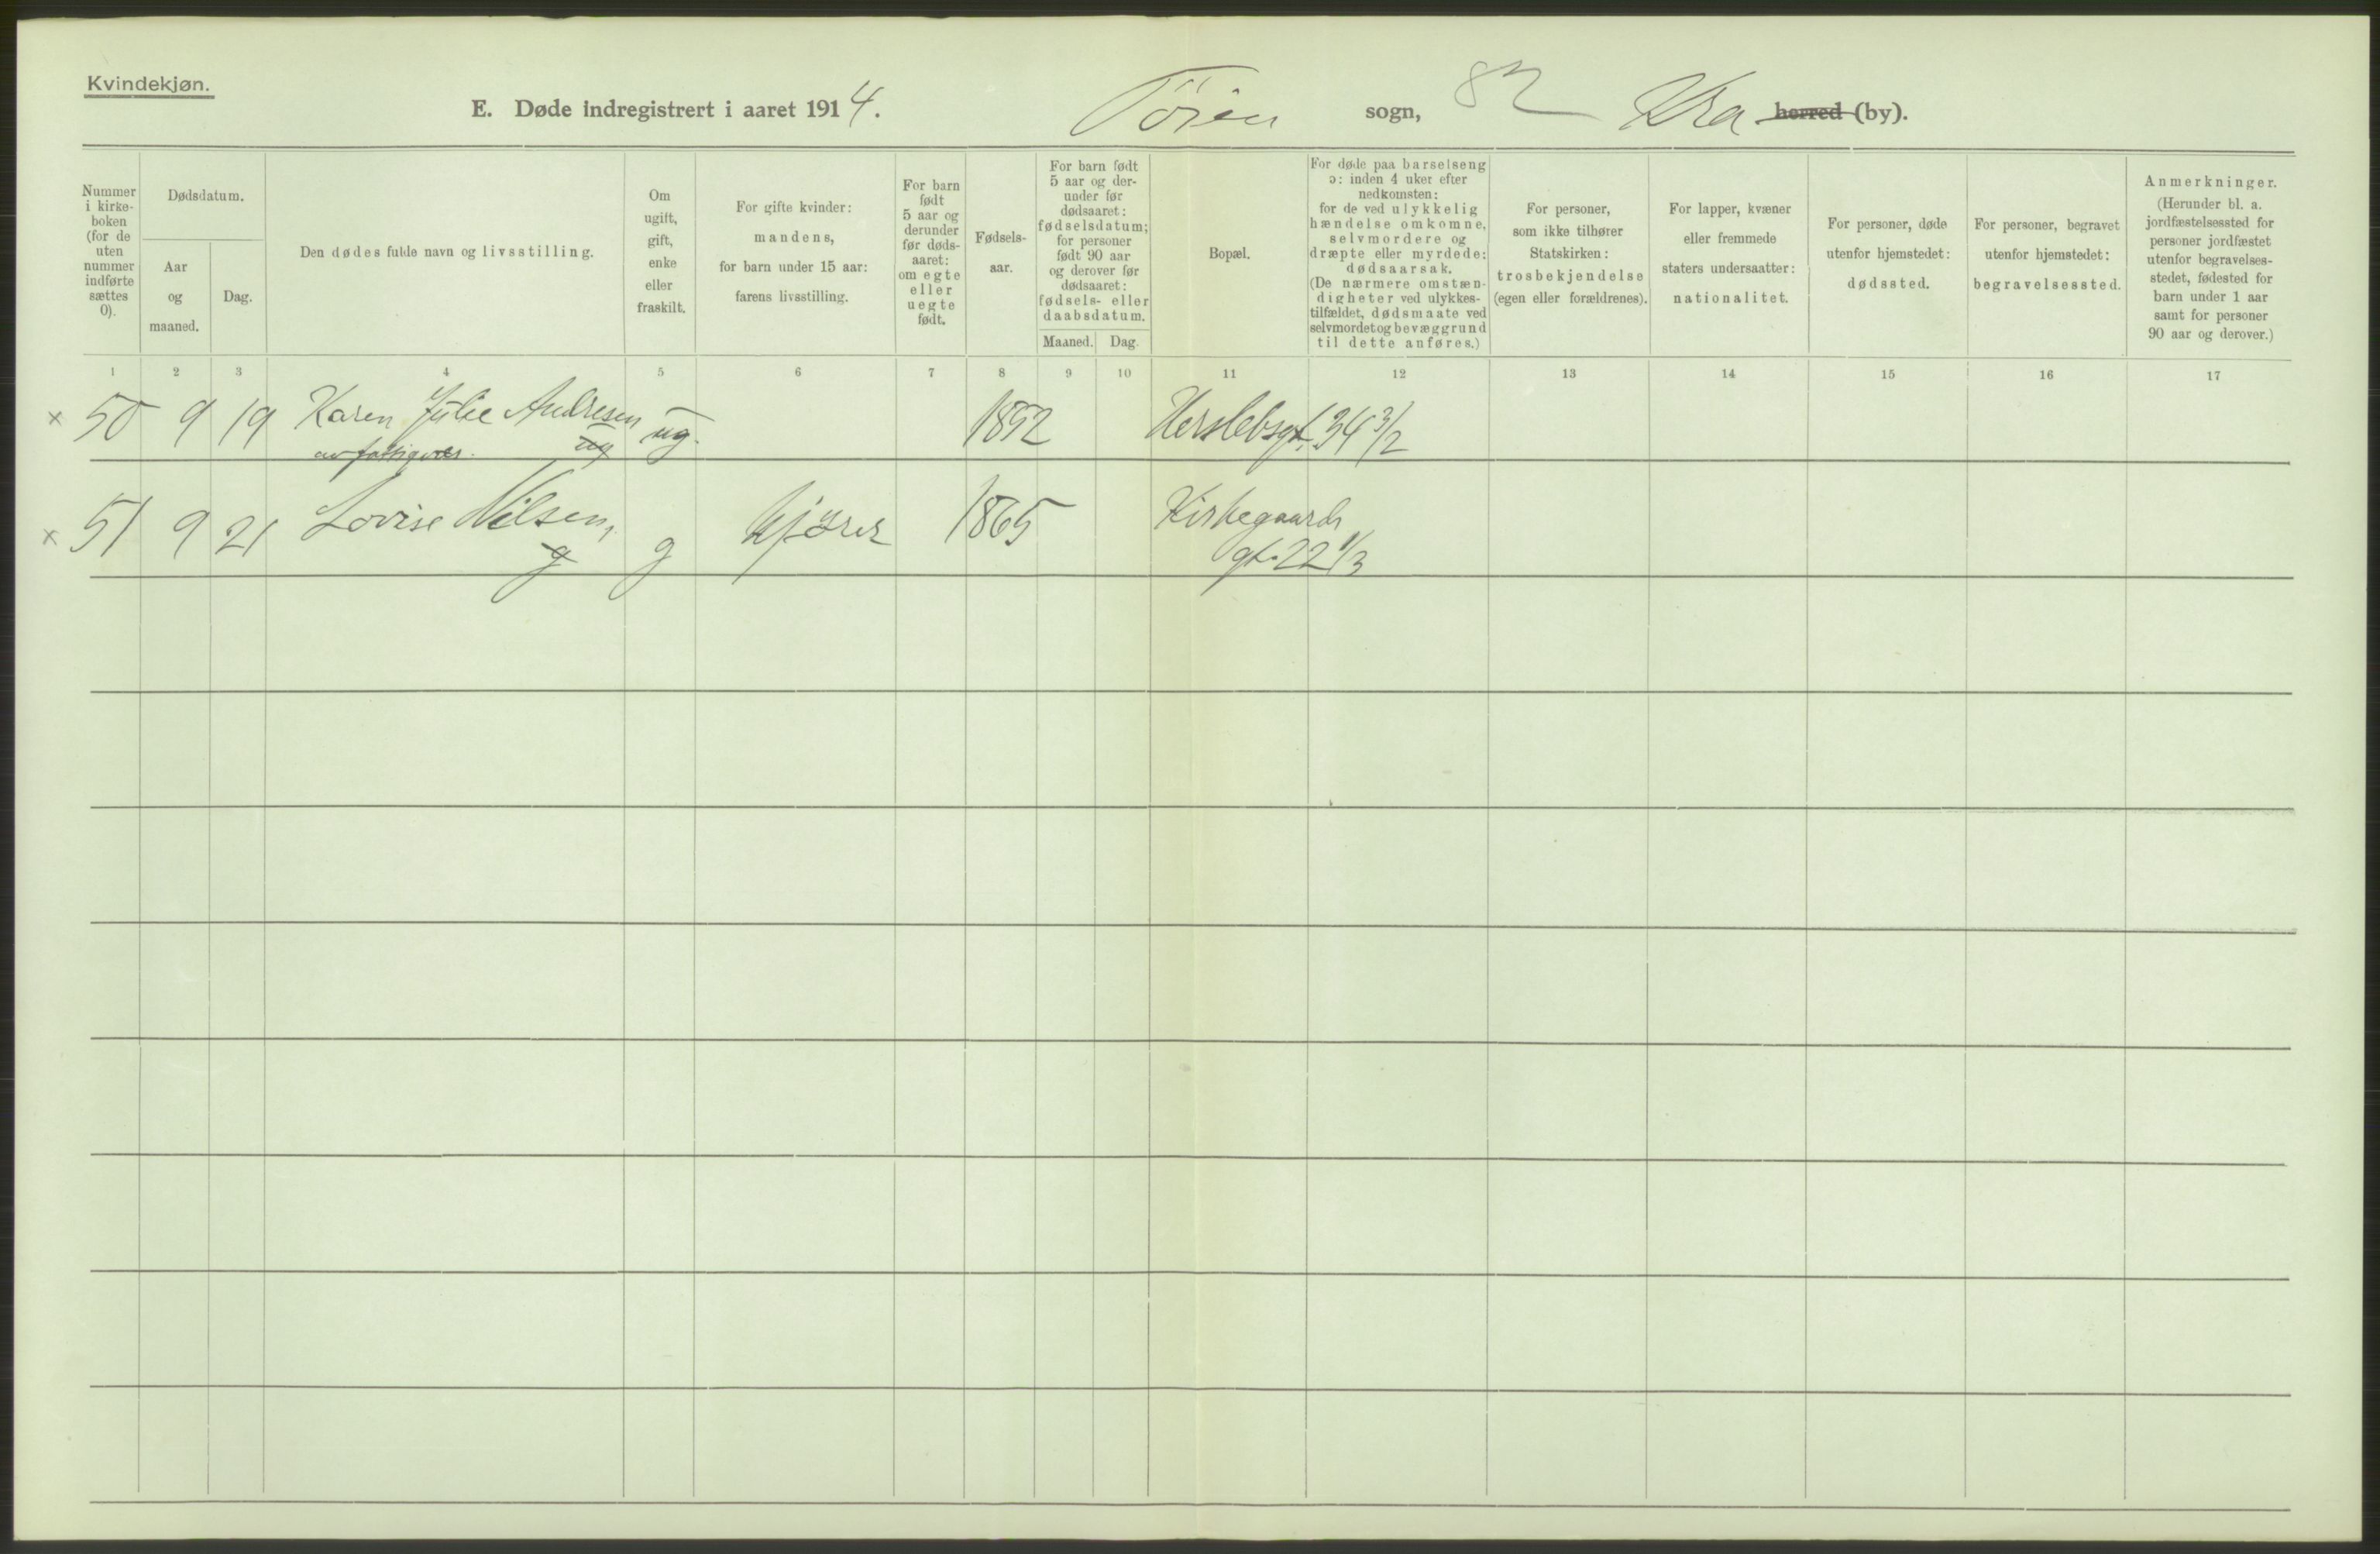 Kvindekjøn.
E. Døde indregistrert i aaret 1914. Tøien sogn, 82 Kra herred (by).
Nummer i kirke- boken (for de uten nummer indførte sættes 0).
Dødsdatum.
Aar og maaned.
Dag.
Den dødes fulde navn og livsstilling.
Om ugift, gift, enke eller fraskilt.
For gifte kvinder: mandens, for barn under 15 aar: farens livsstilling.
For barn født 5 aar og derunder før døds- aaret: om egte eller uegte født.
Fødsels- aar.
For barn født 5 aar og der- under før dødsaaret: fødselsdatum; for personer født 90 aar og derover før dødsaaret: fødsels- eller daabsdatum.
Maaned. Dag.
Bopæl.
For døde paa barselseng ɔ: inden 4 uker efter nedkomsten: for de ved ulykkelig hændelse omkomne, selvmordere og dræpte eller myrdede: dødsaarsak. (De nærmere omstæn- digheter ved ulykkes- tilfældet, dødsmaate ved selvmordet og bevæggrund til dette anføres.)
For personer, som ikke tilhører Statskirken: trosbekjendelse (egen eller forældrenes).
For lapper, kvæner eller fremmede staters undersaatter: nationalitet.
For personer, døde utenfor hjemstedet: dødssted.
For personer, begravet utenfor hjemstedet: begravelsessted.
Anmerkninger. (Herunder bl. a. jordfæstelsessted for personer jordfæstet utenfor begravelses- stedet, fødested for barn under 1 aar samt for personer 90 aar og derover.)
1 2 3 4 5 6 7 8 9 10 11 12 13 14 15 16 17
x 50 9 19 Karen Julie Andresen ug. 1852 Herslebsgt. 34 3/2
av fattigvæs. ug
x 51 9 21 Lovise Nilsen, g kjører 1865 Kirkegaards
g gt. 22 1/3